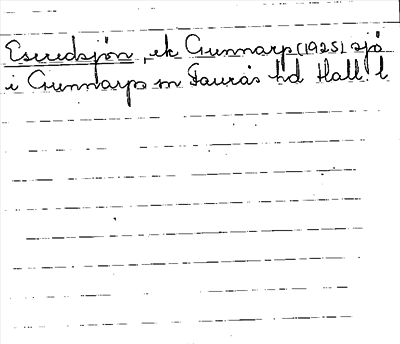 Esseredsjön, ek Gunnarp (1925) sjö
i Gunnarps sn Faurås hd Hall. l